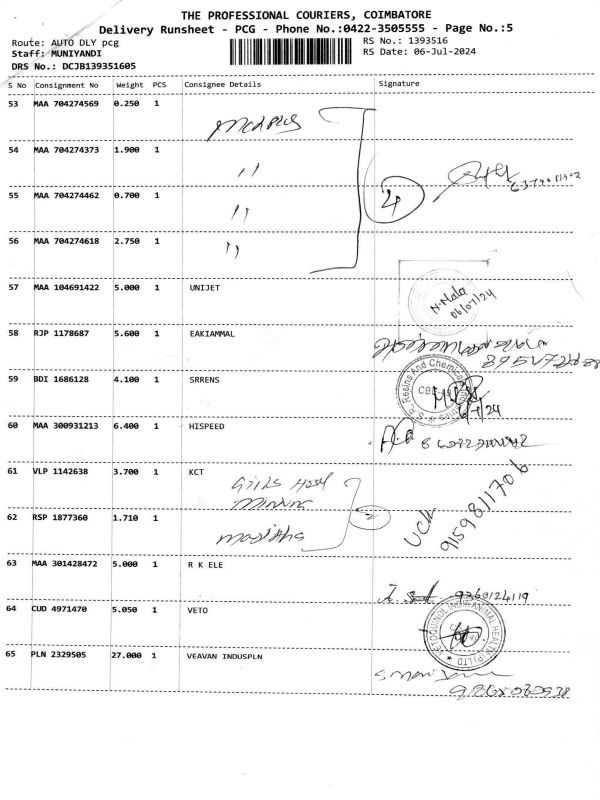 THE PROFESSIONAL COURIERS, COIMBATORE
Delivery Runsheet - PCG - Phone No.:0422-3505555 - Page No.:5
Route: AUTO DLY pcg RS No.: 1393516
Staff: MUNIYANDI RS Date: 06-Jul-2024
DRS No.: DCJB139351605
S No Consignment No Weight PCS Consignee Details Signature
53 MAA 704274569 0.250 1
54 MAA 704274373 1.900 1 ,,
4
55 MAA 704274462 0.700 1 ,,
56 MAA 704274618 2.750 1 ,,
57 MAA 104691422 5.000 1 UNIJET
N. Mala
06/07/24
58 RJP 1178687 5.600 1 EAKIAMMAL
59 BDI 1686128 4.100 1 SRRENS
S. R. Resins And Chemical
60 MAA 300931213 6.400 1 HISPEED
61 VLP 1142638 3.700 1 KCT Girls Hosl
62 RSP 1877360 1.710 1
9159811706
63 MAA 301428472 5.000 1 R K ELE
9360124119
64 CUD 4971470 5.050 1 VETO
VETOQUINOL INDIA ANIMAL HEALTH (P) LTD
65 PLN 2329505 27.000 1 VEAVAN INDUSPLN